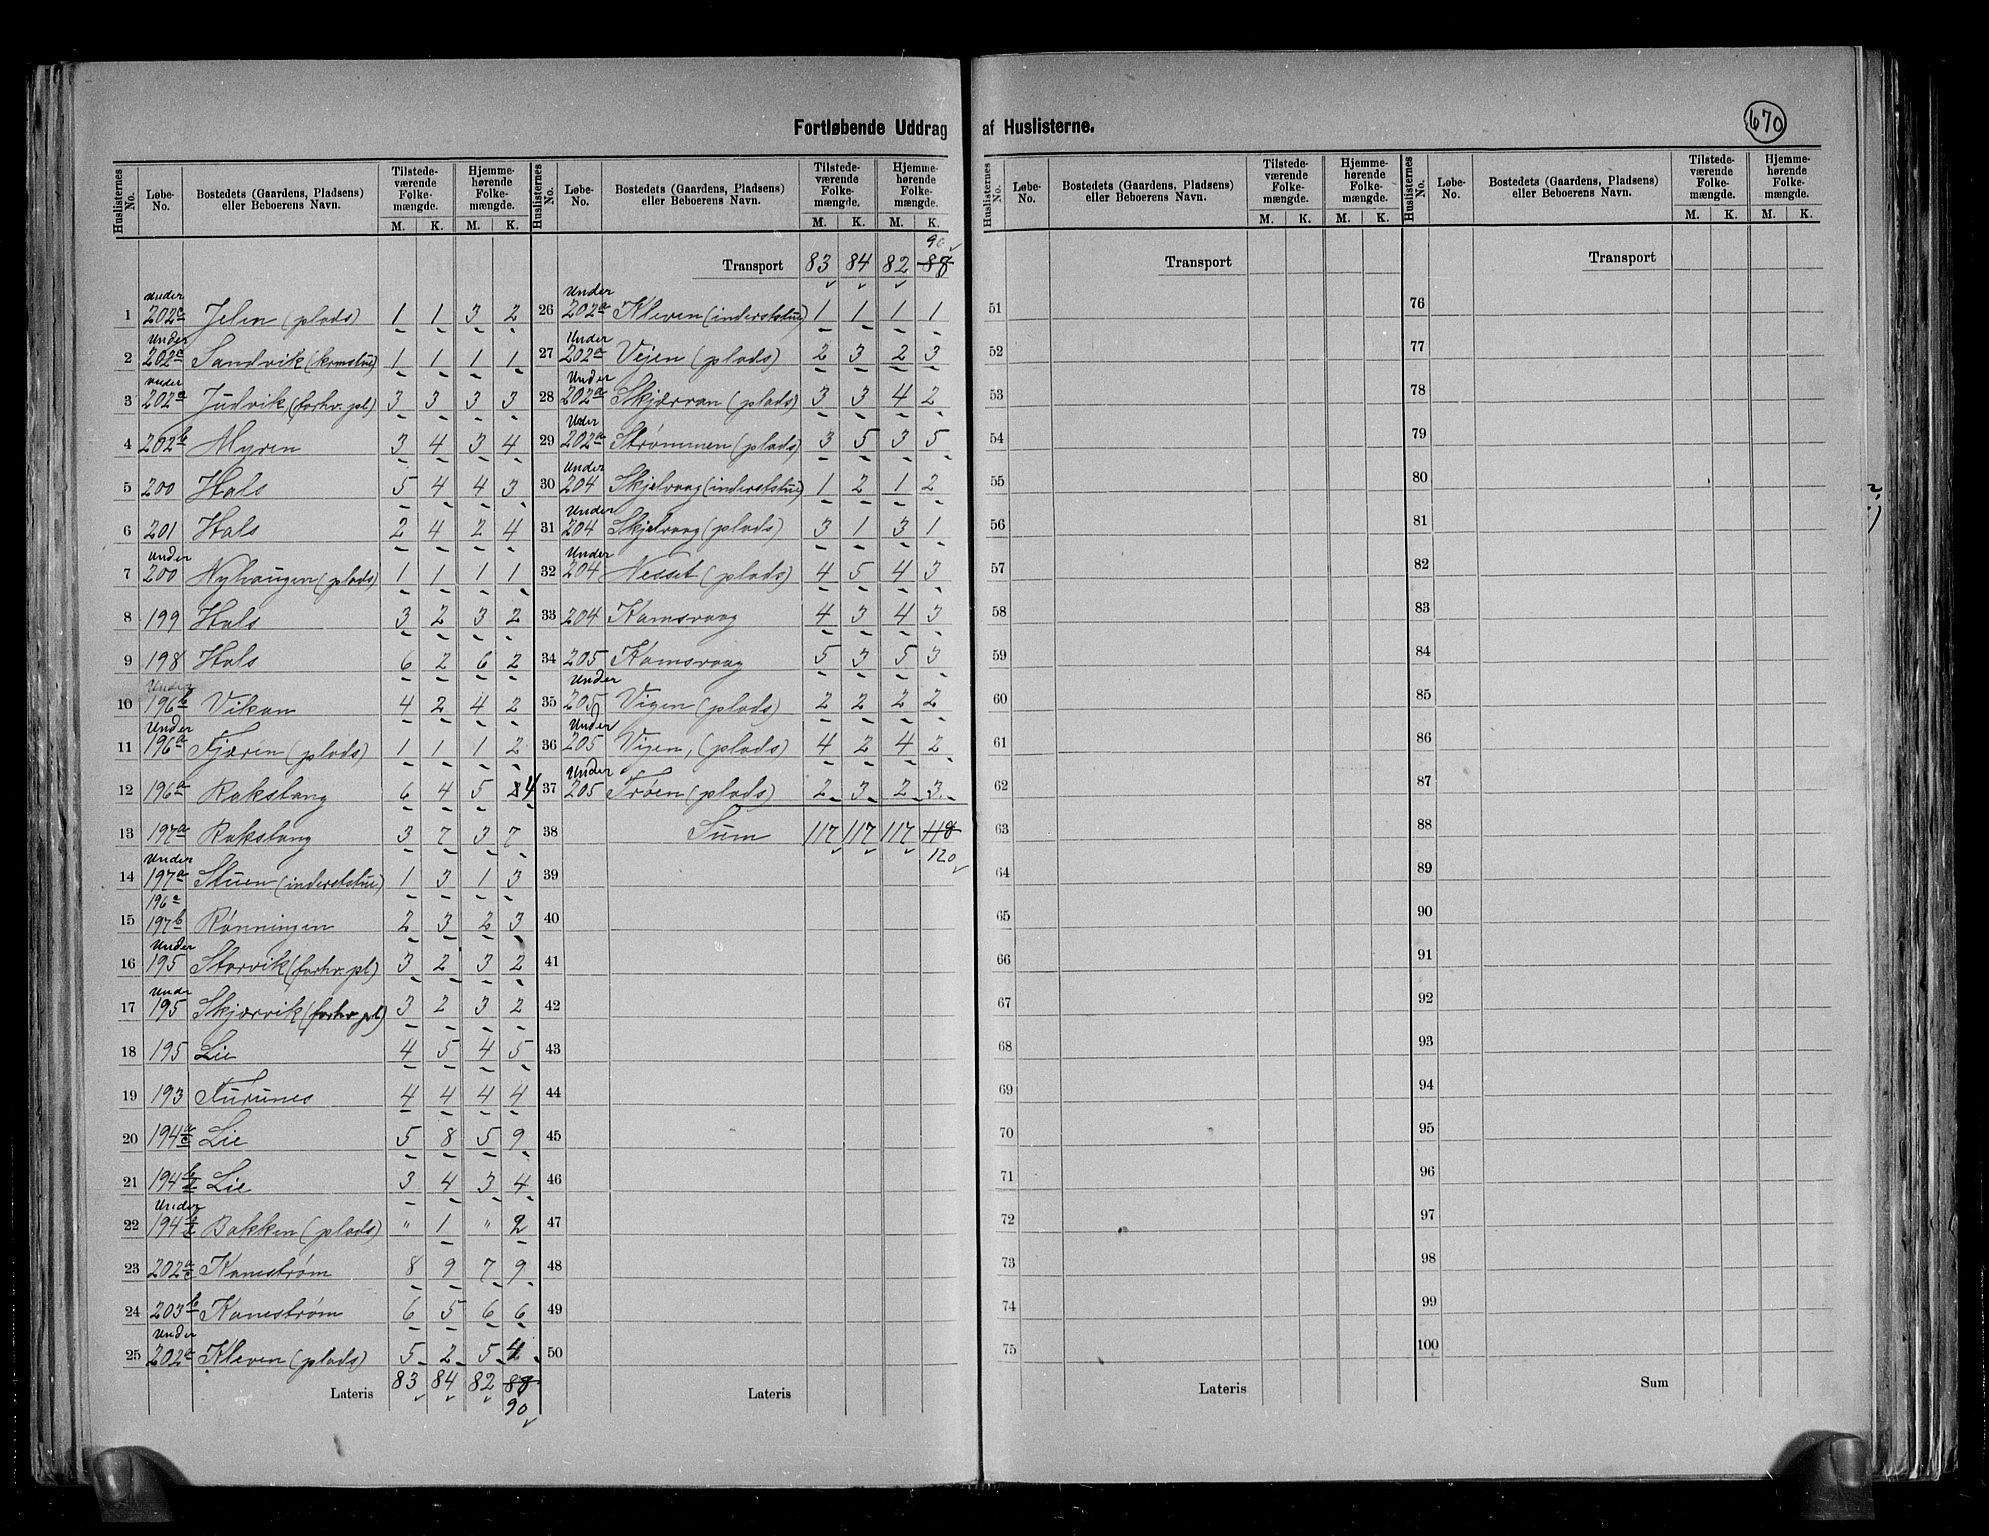 Fortløbende Uddrag af Huslisterne.
670
Huslisternes No. Løbe-No. Bostedets (Gaardens, Pladsens) eller Beboerens Navn. Tilstede-værende Folke-mængde. M. K. Hjemme-hørende Folke-mængde. M. K.
1 under 202a Jelen (plads) 1 1 3 2
2 Under 202a Sandvik 1 1 1 1
3 under 202a Judvik (forhv. pl) 3 3 3 3
4 202b Myren 3 4 3 4
5 200 Hals 5 4 4 3
6 201 Hals 2 4 2 4
7 under 200 Nyhaugen (plads) 1 1 1 1
8 199 Hals 3 2 3 2
9 198 Hals 6 2 6 2
10 Under 196b Vikan 4 2 4 2
11 Under 196a Fjæren (plads) 1 1 1 2
12 196a Rakslang 6 4 5 4
13 197a Rakslang 3 7 3 7
14 Under 197a Stuen (inderststue) 1 3 1 3
15 196a 197b Rønningen 2 3 2 3
16 Under 195 Storvik (forhv. pl) 3 2 3 2
17 Under 195 Skjærvik (forhv. pl) 3 2 3 2
18 195 Lie 4 5 4 5
19 193 Furunes 4 4 4 4
20 194a/c Lie 5 8 5 9
21 194 Lie 3 4 3 4
22 Under 194 Bakken (plads) " 1 " 2
23 202a/c Kanestrøm 8 9 7 9
24 203b Kanestrøm 6 5 6 6
25 Under 202a Kleven (plads) 5 2 5 4
Lateris 83 84 82 88
90
Huslisternes No. Løbe-No. Bostedets (Gaardens, Pladsens) eller Beboerens Navn. Tilstede-værende Folke-mængde. M. K. Hjemme-hørende Folke-mængde. M. K.
90
Transport 83 84 82 88
26 Under 202a Kleven (inderststue) 1 1 1 1
27 Under 202a Vejen (plads) 2 3 2 3
28 Under 202a Skjærvan (plads) 3 3 4 2
29 Under 202a Strømmen (plads) 3 5 3 5
30 Under 204 Skjelvaag (inderststue) 1 2 1 2
31 Under 204 Skjelvaag (plads) 3 1 3 1
32 Under 204 Nesset (plads) 4 5 4 3
33 204 Kamsvaag 4 3 4 3
34 205 Kamsvaag 5 3 5 3
35 Under 205 Vigen (plads) 2 2 2 2
36 Under 205 Vigen, (plads) 4 2 4 2
37 Under 205 Trøen (plads) 2 3 2 3
38 Sum 117 117 117 118
120
39
40
41
42
43
44
45
46
47
48
49
50
Lateris
Huslisternes No. Løbe-No. Bostedets (Gaardens, Pladsens) eller Beboerens Navn. Tilstede-værende Folke-mængde. M. K. Hjemme-hørende Folke-mængde. M. K.
Transport
51
52
53
54
55
56
57
58
59
60
61
62
63
64
65
66
67
68
69
70
71
72
73
74
75
Lateris
Huslisternes No. Løbe-No. Bostedets (Gaardens, Pladsens) eller Beboerens Navn. Tilstede-værende Folke-mængde. M. K. Hjemme-hørende Folke-mængde. M. K.
Transport
76
77
78
79
80
81
82
83
84
85
86
87
88
89
90
91
92
93
94
95
96
97
98
99
100
Sum